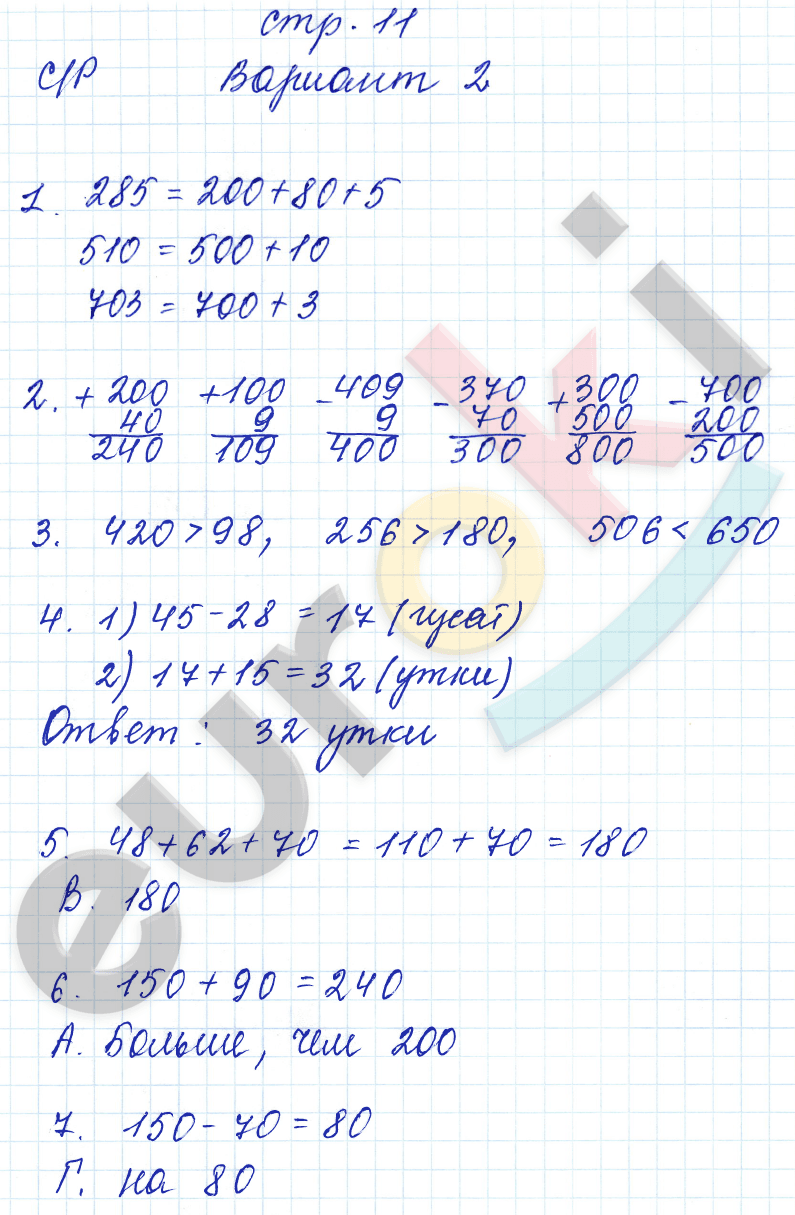 стр. 11
С/Р Вариант 2
1. 285 = 200 + 80 + 5
510 = 500 + 10
703 = 700 + 3
2. + 200 + 100 - 409 - 370 + 300 - 700
40 9 9 70 500 200
240 109 400 300 800 500
3. 420 > 98, 256 > 180, 506 < 650
4. 1) 45 - 28 = 17 (гусат)
2) 17 + 15 = 32 (утки)
Ответ: 32 утки
5. 48 + 62 + 70 = 110 + 70 = 180
В. 180
6. 150 + 90 = 240
А. Больше, чем 200
7. 150 - 70 = 80
Г. на 80
euroki